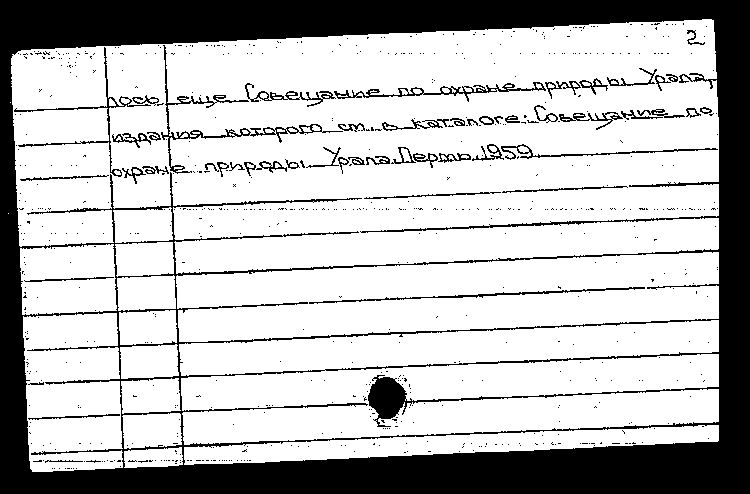 2
лось еще Совещание по охране природы Урала,
издания которого см. в каталоге: Совещание по
охране природы Урала. Пермь, 1959.